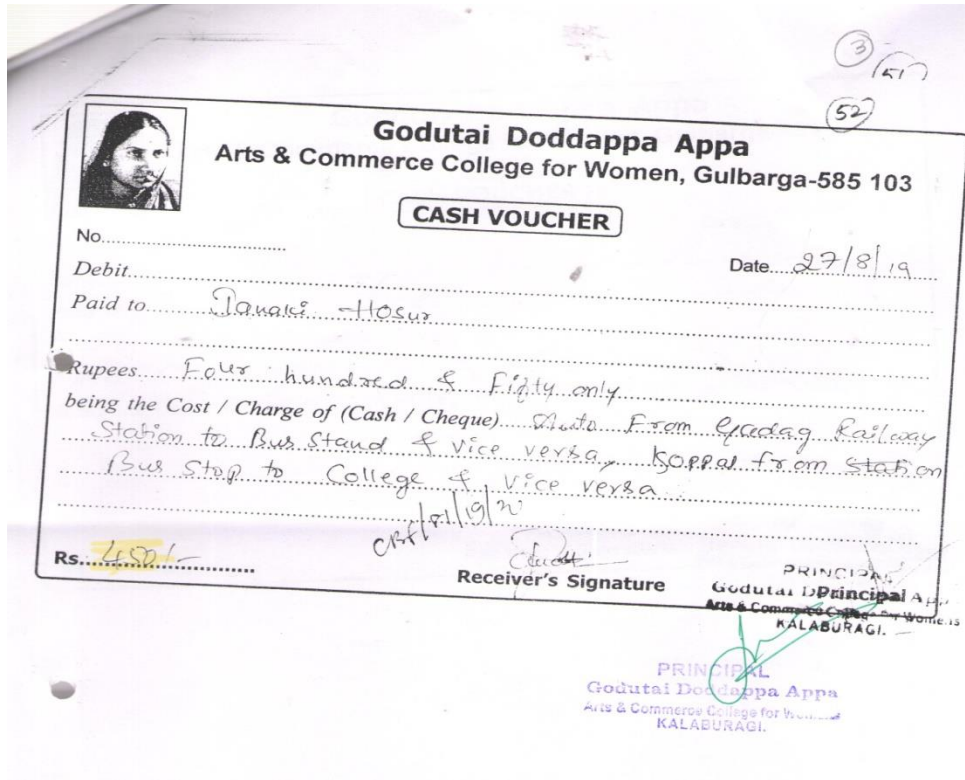 3
51
52
Godutai Doddappa Appa
Arts & Commerce College for Women, Gulbarga-585 103
CASH VOUCHER
No..............................
Date....27/8/19
Debit
Paid to Janaki Hosur
Rupees Four hundred & Fifty only
being the Cost / Charge of (Cash / Cheque) Auto From Gadag Railway
Station to Bus Stand & vice versa, Koppal from Station
Bus Stop to College & vice versa
Rs. 450/-
Receiver's Signature
PRINCIPAL
Godutai Principal
Arts & Commerce
KALABURAGI.
PRINCIPAL
Godutai Doddappa Appa
Arts & Commerce College for
KALABURAGI.